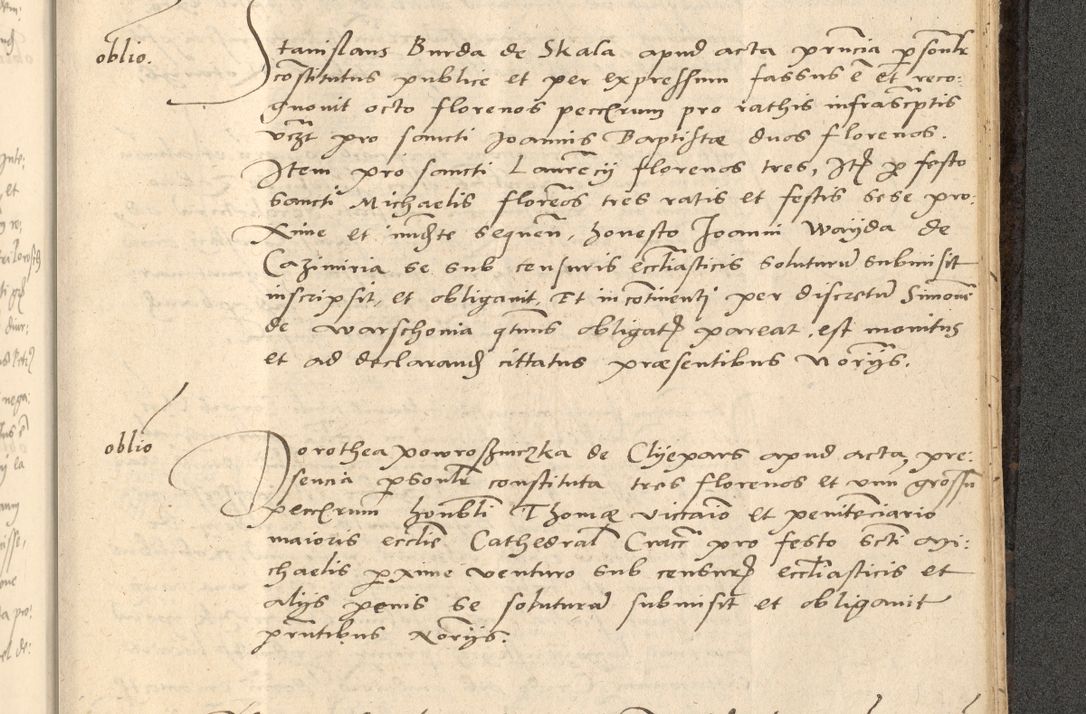 oblio.
Stanislaus Burda de Skala apud acta prncia psonlr
constitutus publice et per expressum fassus e et reco:
gnouit octo florenos pecc̃rum pro rathis infrascptis
vczt pro sancti Joannis Baptistæ duos florenos.
Item pro sancti Laurecy florenos tres, Itē p festo
Sancti Michaelis floreos tres ratis et festis sese pro:
xime et imēdte sequen, honesto Joanni Wayda de
Cazimiria se sub censuris eccliasticis soluturū submisit
inscripsit, et obligauit, Et in continenti per discretū Simone
de Warschouia qtnus obligatę pareat, est monitus
et ad declarand cittatus præsentibus Noriis.
oblio
Dorothea Powroszniczka de Clyepars apud acta pre:
sencia psonlr constituta tres florenos et unu grossu
pecc̃rum honbli Thomæ vicaio et penitenciario
maioris ecclie Cathedral Crac pro festo scti Mi:
chaelis pxime venturo sub censurę eccliasticis et
aliis penis se soluturā submisit et obligauit
prntibus Noriis.